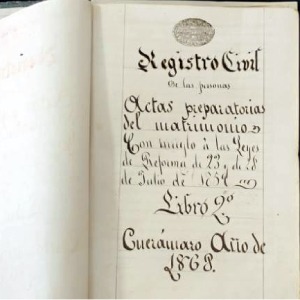 Registro Civil
de las personas
Actas preparatorias
del matrimonio
Con arreglo á las Leyes
de Reforma de 23, de 28
de Julio de 1859
Libro 2º
Cuerámaro Año de
1868.